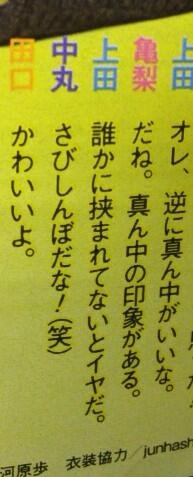 上田 オレ、逆に真ん中がいいな。
亀梨 だね。真ん中の印象がある。
上田 誰かに挟まれてないとイヤだ。
中丸 さびしんぼだな!(笑)
田口 かわいいよ。
河原歩 衣装協力/junhash